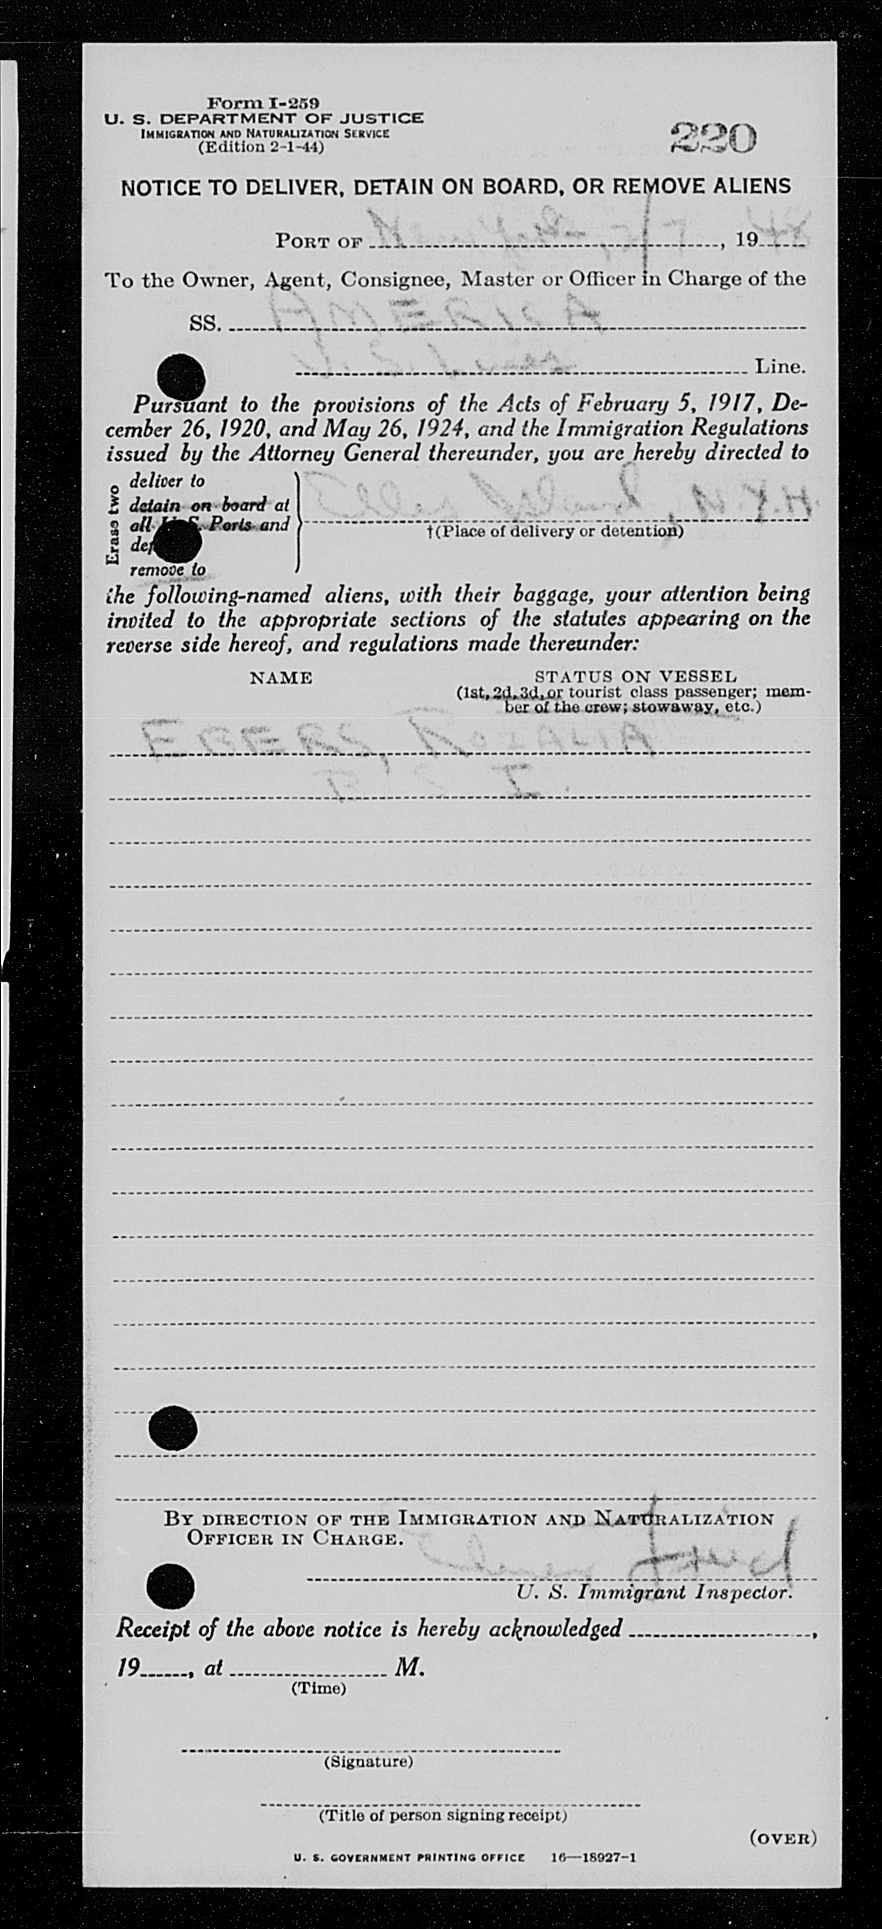 Form I-259
U. S. DEPARTMENT OF JUSTICE
IMMIGRATION AND NATURALIZATION SERVICE
(Edition 2-1-44)
220
NOTICE TO DELIVER, DETAIN ON BOARD, OR REMOVE ALIENS
PORT OF New York, , 1948
To the Owner, Agent, Consignee, Master or Officer in Charge of the
SS. AMERICA
U. S. Lines Line.
Pursuant to the provisions of the Acts of February 5, 1917, De-
cember 26, 1920, and May 26, 1924, and the Immigration Regulations
issued by the Attorney General thereunder, you are hereby directed to
Erase two
deliver to
detain on board at
all U. S. Ports and
remove to
Ellis Island, N.Y.H.
†(Place of delivery or detention)
the following-named aliens, with their baggage, your attention being
invited to the appropriate sections of the statutes appearing on the
reverse side hereof, and regulations made thereunder:
NAME STATUS ON VESSEL
(1st, 2d, 3d, or tourist class passenger; mem-
ber of the crew; stowaway, etc.)
EGERS, ROZALIA
BY DIRECTION OF THE IMMIGRATION AND NATURALIZATION
OFFICER IN CHARGE.
U. S. Immigrant Inspector.
Receipt of the above notice is hereby acknowledged ,
19 , at M.
(Time)
(Signature)
(Title of person signing receipt)
(OVER)
U. S. GOVERNMENT PRINTING OFFICE 16—18927-1